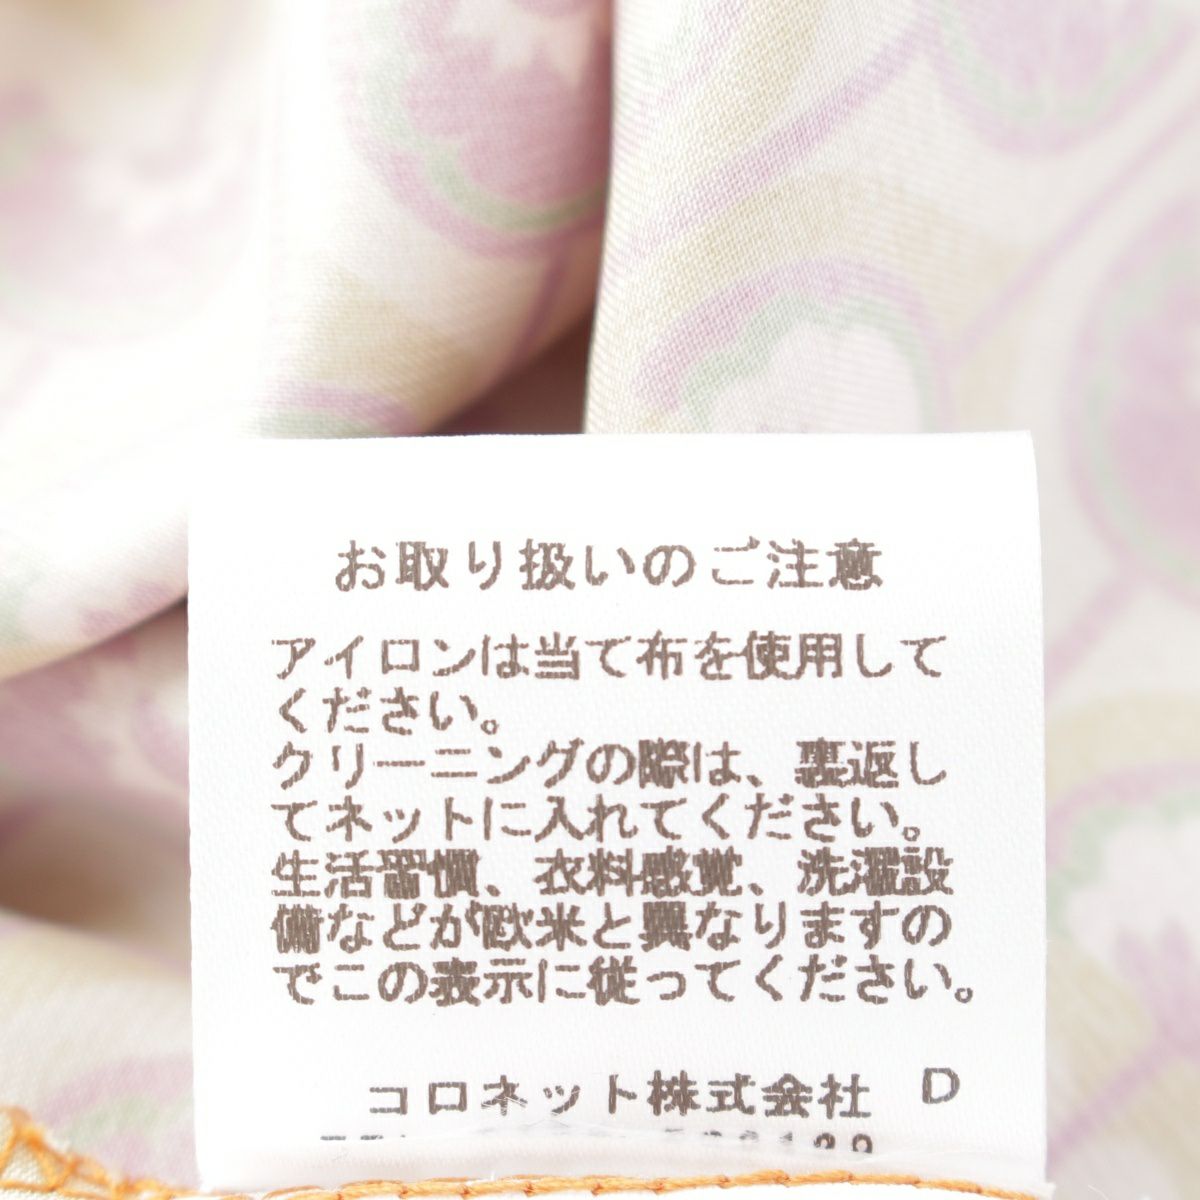 お取り扱いのご注意
アイロンは当て布を使用して
ください。
クリーニングの際は、裏返し
てネットに入れてください。
生活習慣、衣料感覚、洗濯設
備などが欧米と異なりますの
でこの表示に従ってください。
コロネット株式会社 D